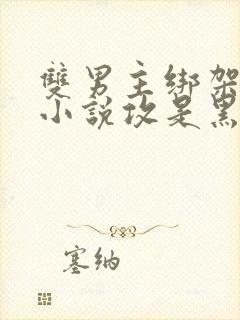 雙男主綁架
小說攻是黑
塞納